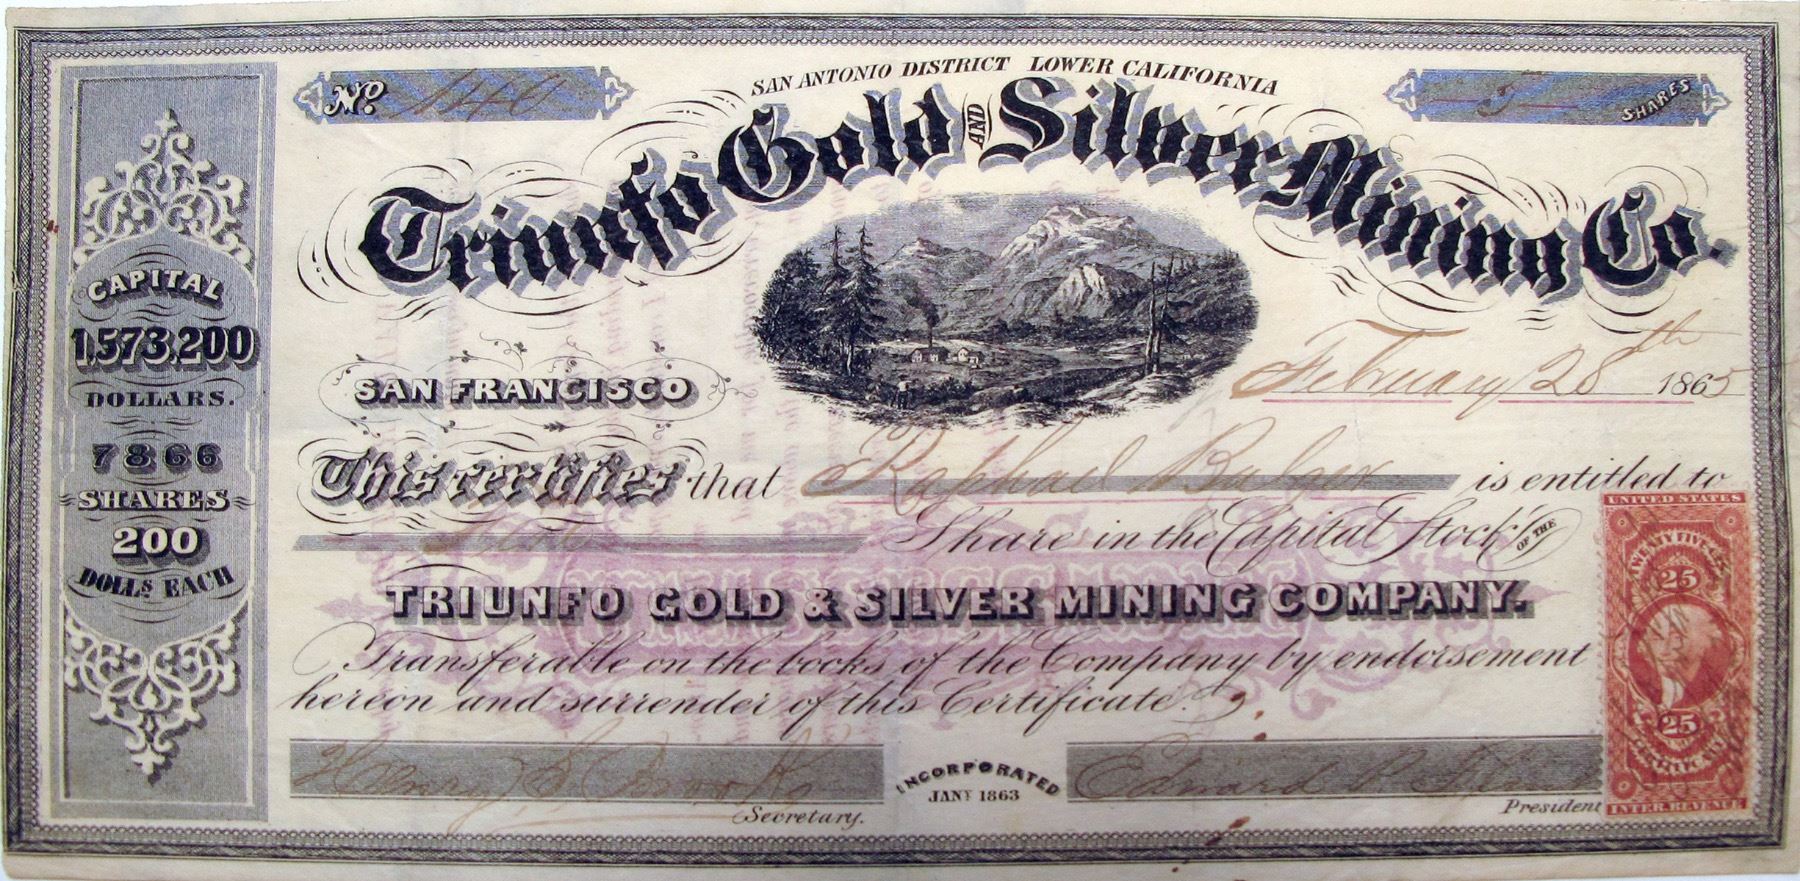 No. 140
SAN ANTONIO DISTRICT LOWER CALIFORNIA
5 SHARES
Triunfo Gold AND Silver Mining Co.
CAPITAL
1,573,200
DOLLARS.
7866
SHARES
200
DOLLS EACH
SAN FRANCISCO
February 28th 1865
This certifies that Raphael is entitled to
Share in the Capital Stock OF THE
TRIUNFO GOLD & SILVER MINING COMPANY.
Transferable on the books of the Company by endorsement
hereon and surrender of this Certificate.
UNITED STATES
TWENTY FIVE CTS
25
25
CERTIFICATE
INTER. REVENUE
Henry S Brooks
Secretary.
INCORPORATED
JANY 1863
Edward
President